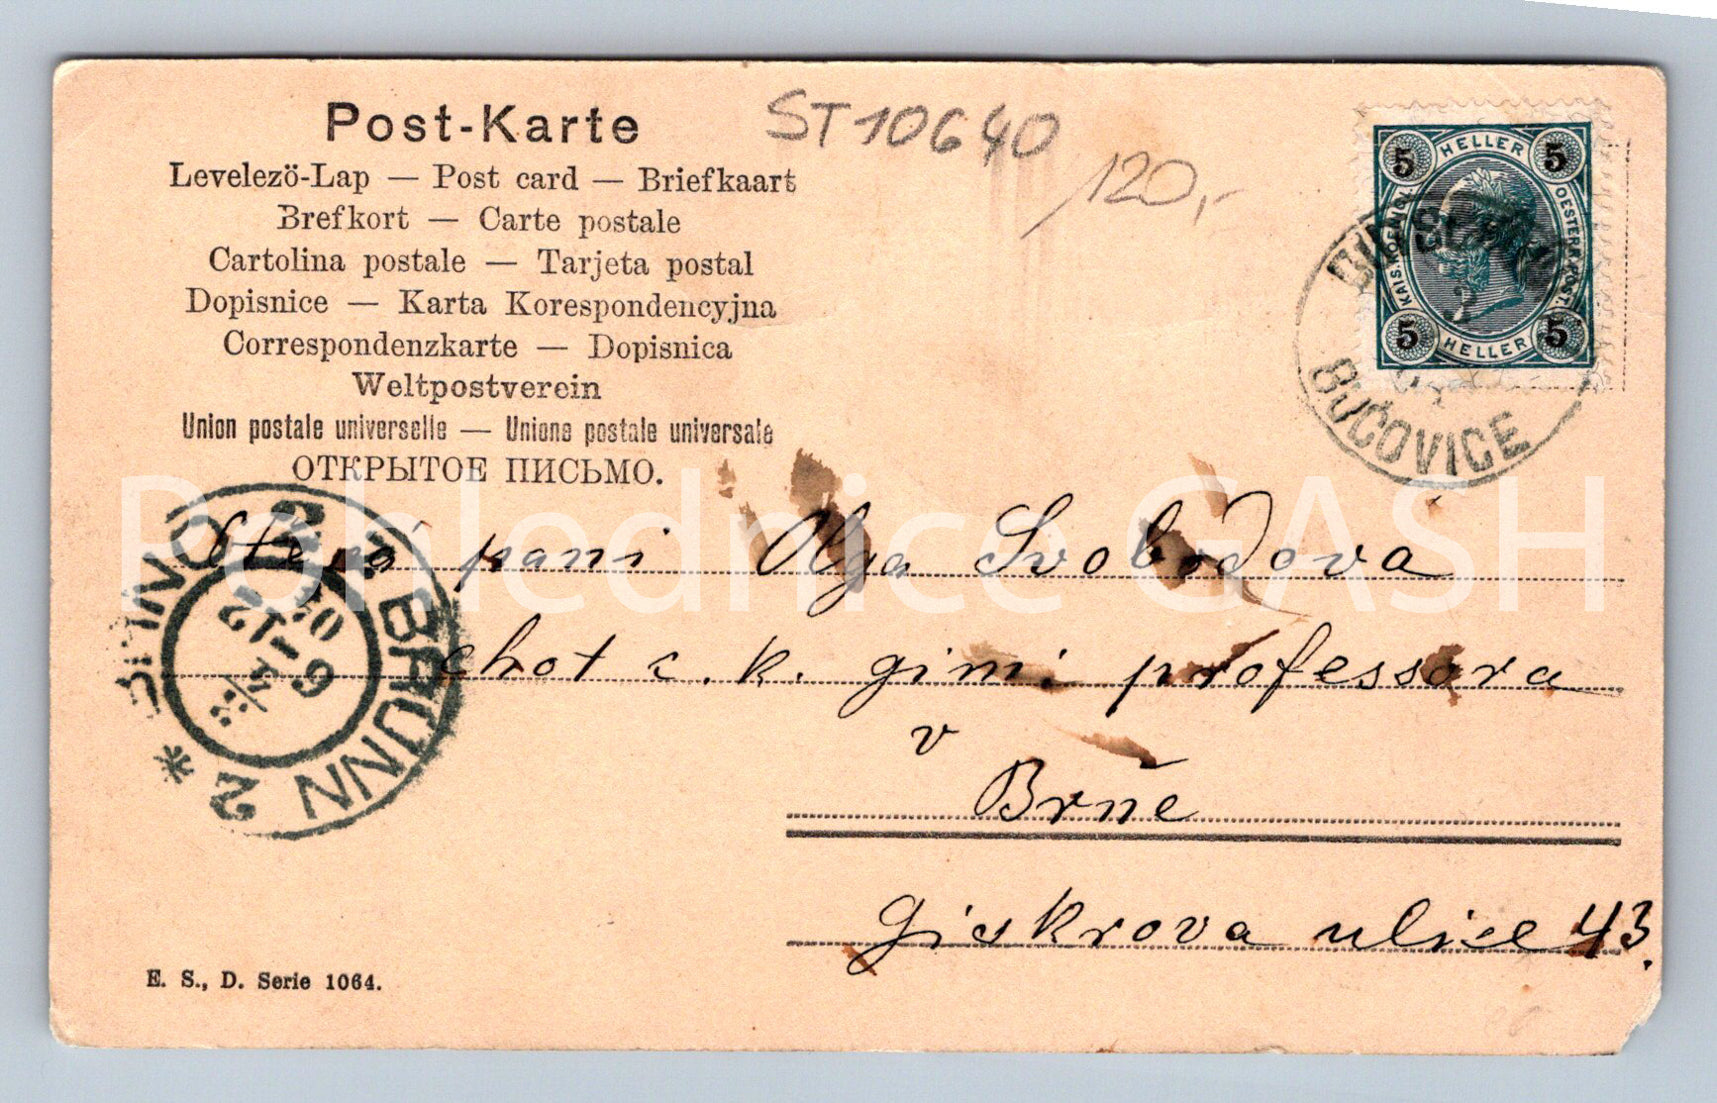 Post-Karte
ST10640
/120,-
Levelezö-Lap — Post card — Briefkaart
Brefkort — Carte postale
Cartolina postale — Tarjeta postal
Dopisnice — Karta Korespondencyjna
Correspondenzkarte — Dopisnica
Weltpostverein
Union postale universelle — Unione postale universale
ОТКРЫТОЕ ПИСЬМО.
5 HELLER 5
KAIS. KOENIGL. OESTERR. POST.
5 HELLER 5
BUČOVICE
Pohlednice GASH
pani Olga Svobodova
chot c. k. gimn. professora
v
Brně
Giskrova ulice 43.
BRNO 2 * BRÜNN 2 *
6
12
E. S., D. Serie 1064.